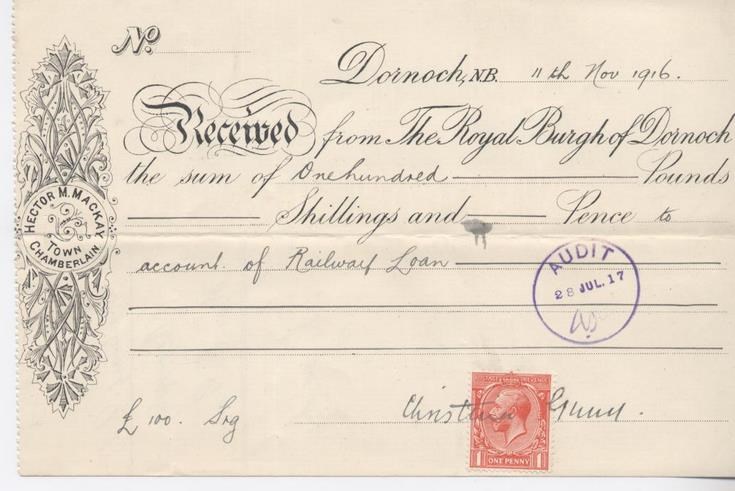 No.
Dornoch, N.B. 11th Nov 1916.
Received from The Royal Burgh of Dornoch
the sum of One hundred Pounds
Shillings and Pence to
account of Railway Loan
HECTOR M. MACKAY
TOWN
CHAMBERLAIN
AUDIT
28 JUL. 17
£100. Stg
Christina Gunn.
POSTAGE REVENUE
1 ONE PENNY 1